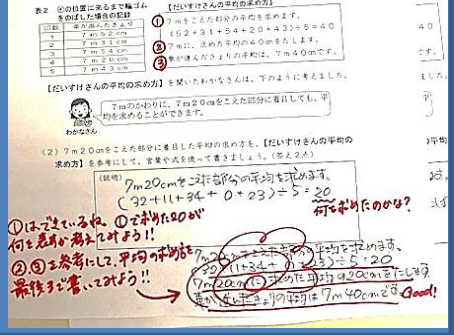 表2 ㋓の位置に来るまで輪ゴム
をのばした場合の記録
回数 車が進んだきょり
1 7m52cm
2 7m31cm
3 7m54cm
4 7m20cm
5 7m43cm
【だいすけさんの平均の求め方】
① 7mをこえた部分の平均を求めます。
(52+31+54+20+43)÷5=40
② 7mに、求めた平均の40cmをたします。
③ 車が進んだきょりの平均は、7m40cmです。
【だいすけさんの平均の求め方】を聞いたわかなさんは、下のように考えました。
7mのかわりに、7m20cmをこえた部分に着目しても、平
均を求めることができます。
わかなさん
(2) 7m20cmをこえた部分に着目した平均の求め方を、【だいすけさんの平均の
求め方】を参考にして、言葉や式を使って書きましょう。(答え2点)
(説明)
7m20cmをこえた部分の平均を求めます。
(32+11+34+0+23)÷5=20
何を求めたのかな?
①はできているね ①で求めた20が
何を表すか考えてみよう!!
②③を参考にして、平均の求め方を
最後まで書いてみよう!!
7m20cmをこえた部分の平均を求めます。
(32+11+34+0+23)÷5=20
7m20cmに求めた平均の20cmをたします。
車が進んだきょりの平均は7m40cmです。
Good!